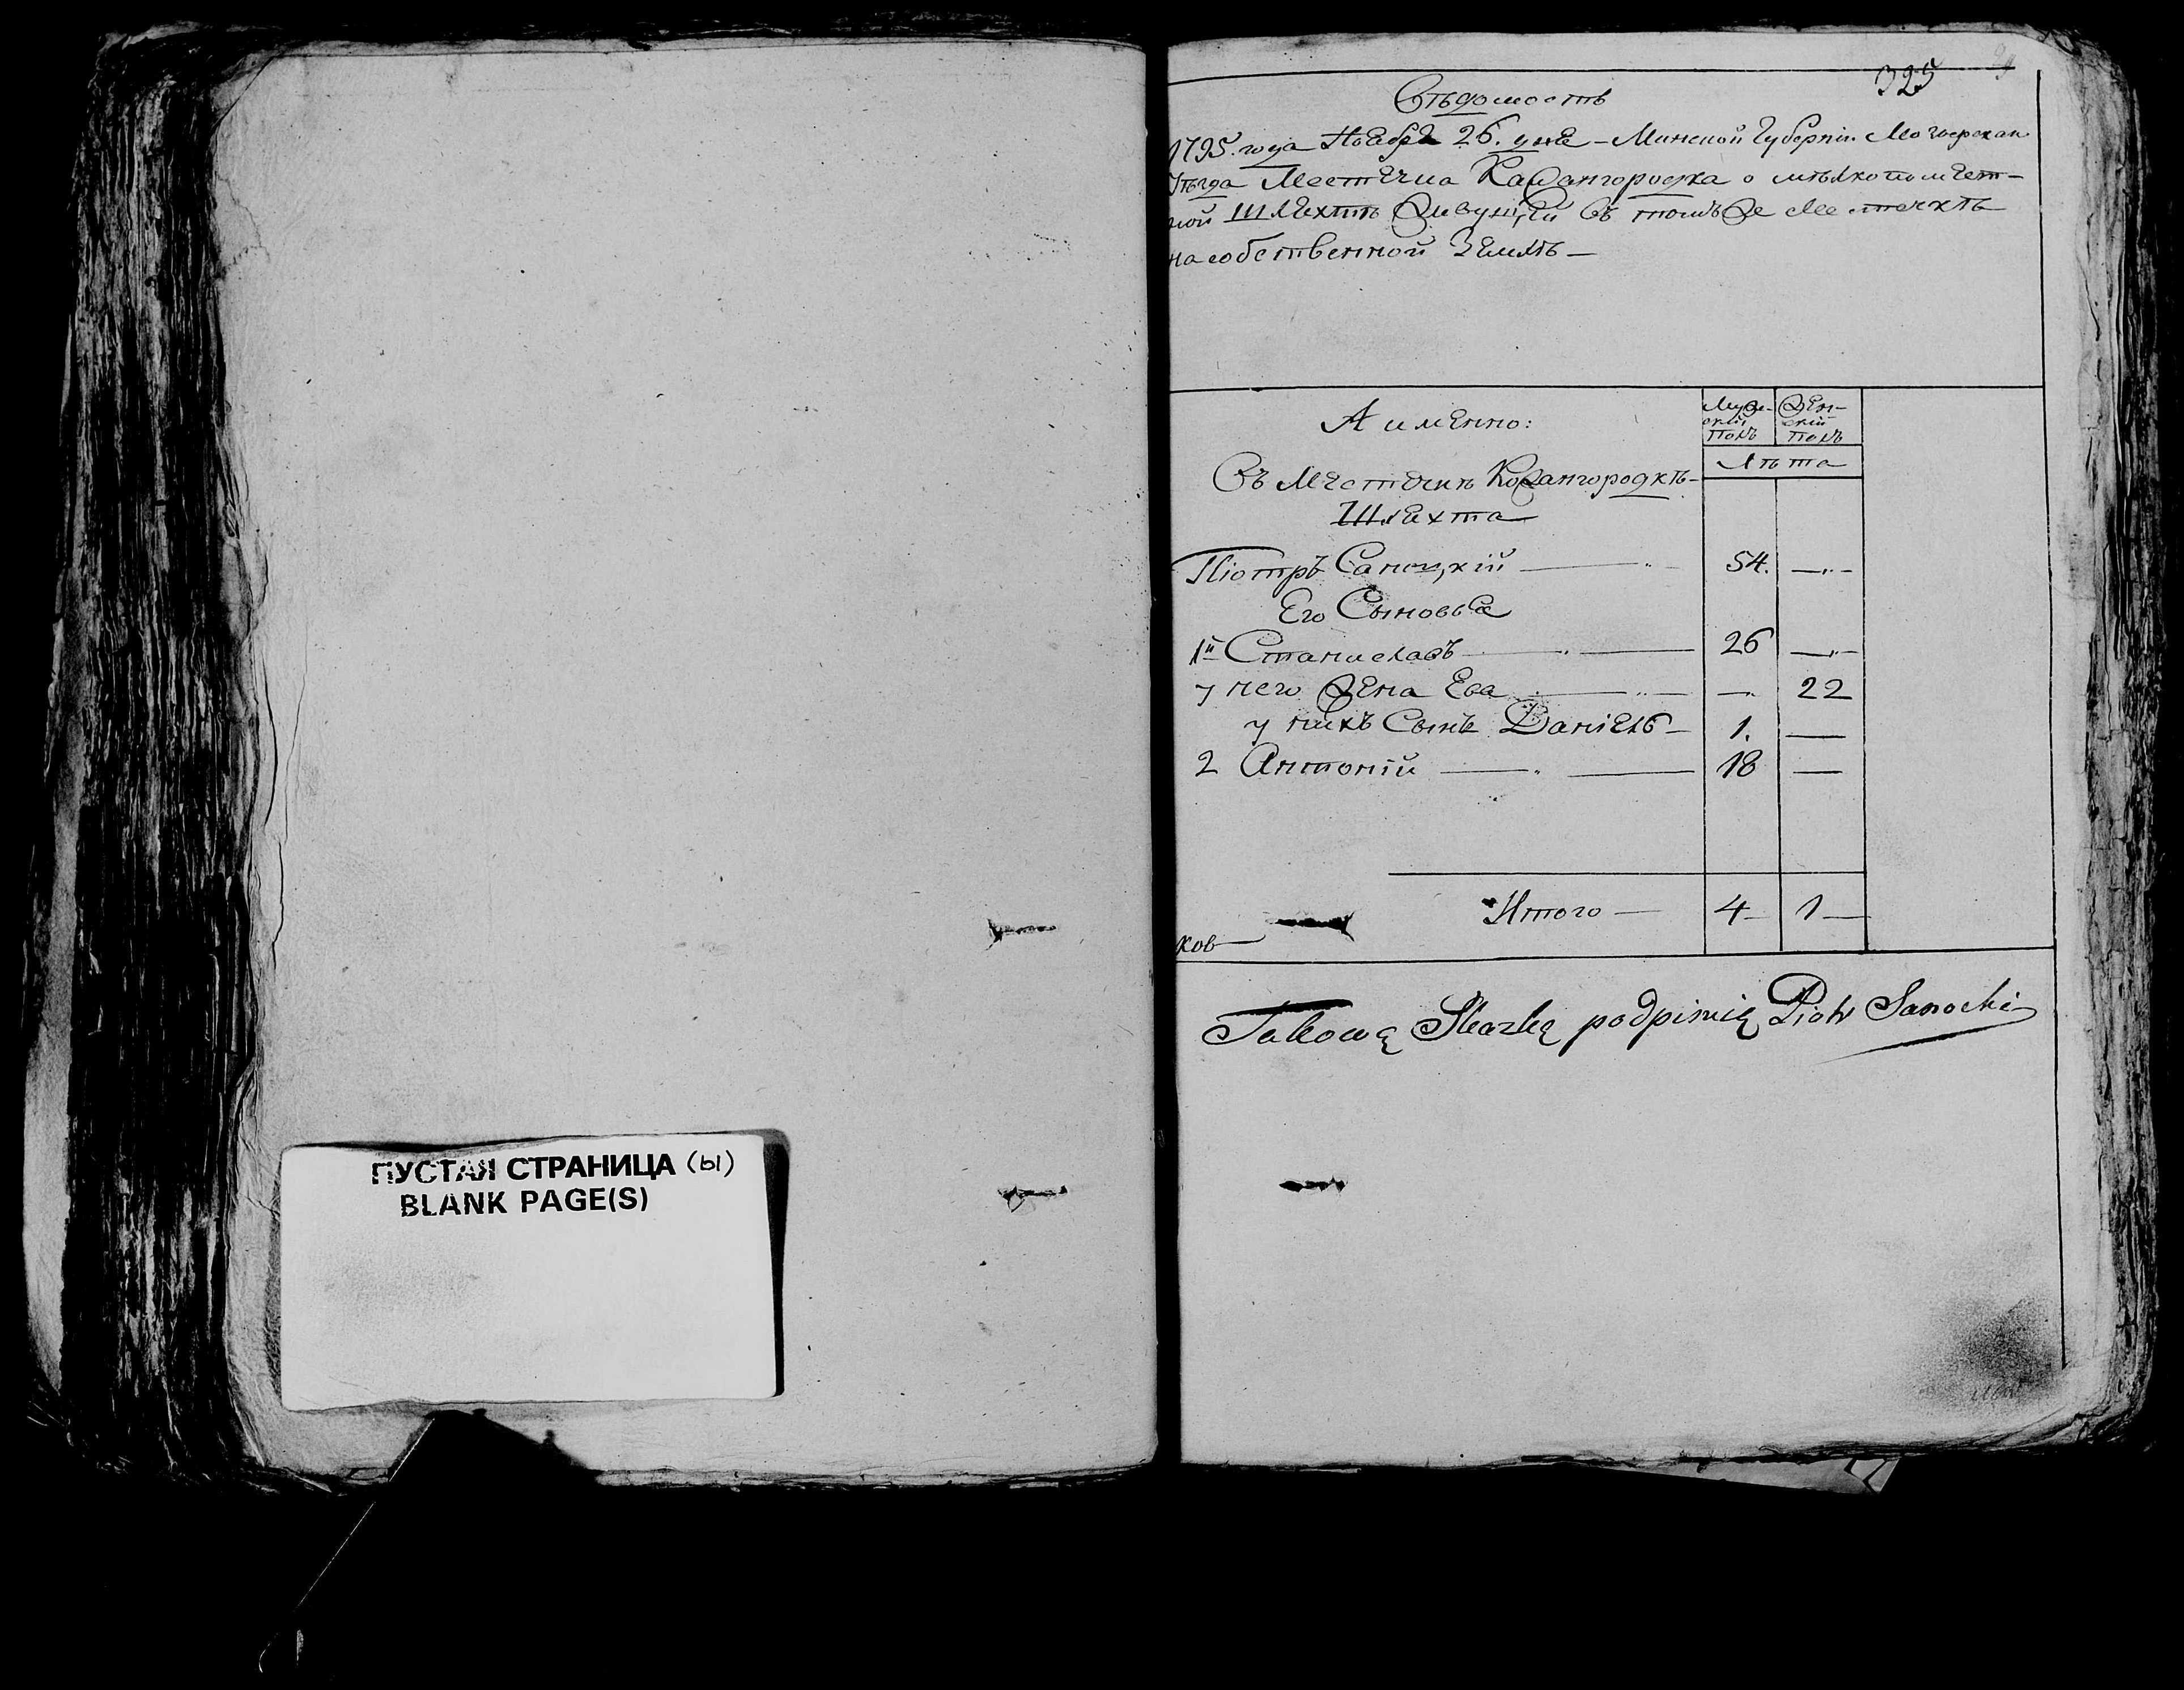 ПУСТАЯ СТРАНИЦА (ы)
BLANK PAGE(S)
325
Вѣдомость
1795. года Ноября 26. дня – Минской Губерніи Мозырскаго
Уѣзда Местечка Кажангородка о мѣлкопомест-
ной Шляхтѣ живущей въ томъ же Местечкѣ
на собственной Землѣ –
А имянно:
Муже-
скій
Полъ
Жен-
скій
Полъ
Въ Местечкѣ Кожангородкѣ –
Лѣта
Шляхта
Піотръ Саноцкій 54. —
Его Сыновья
1й Станиславъ 26 —
у него жена Ева — 22
у нихъ Сынъ Даніель 1. —
2 Антоній 18 —
Итого — 4 – 1 —
ков
Takową Skazkę podpisuię Piotr Sanocki